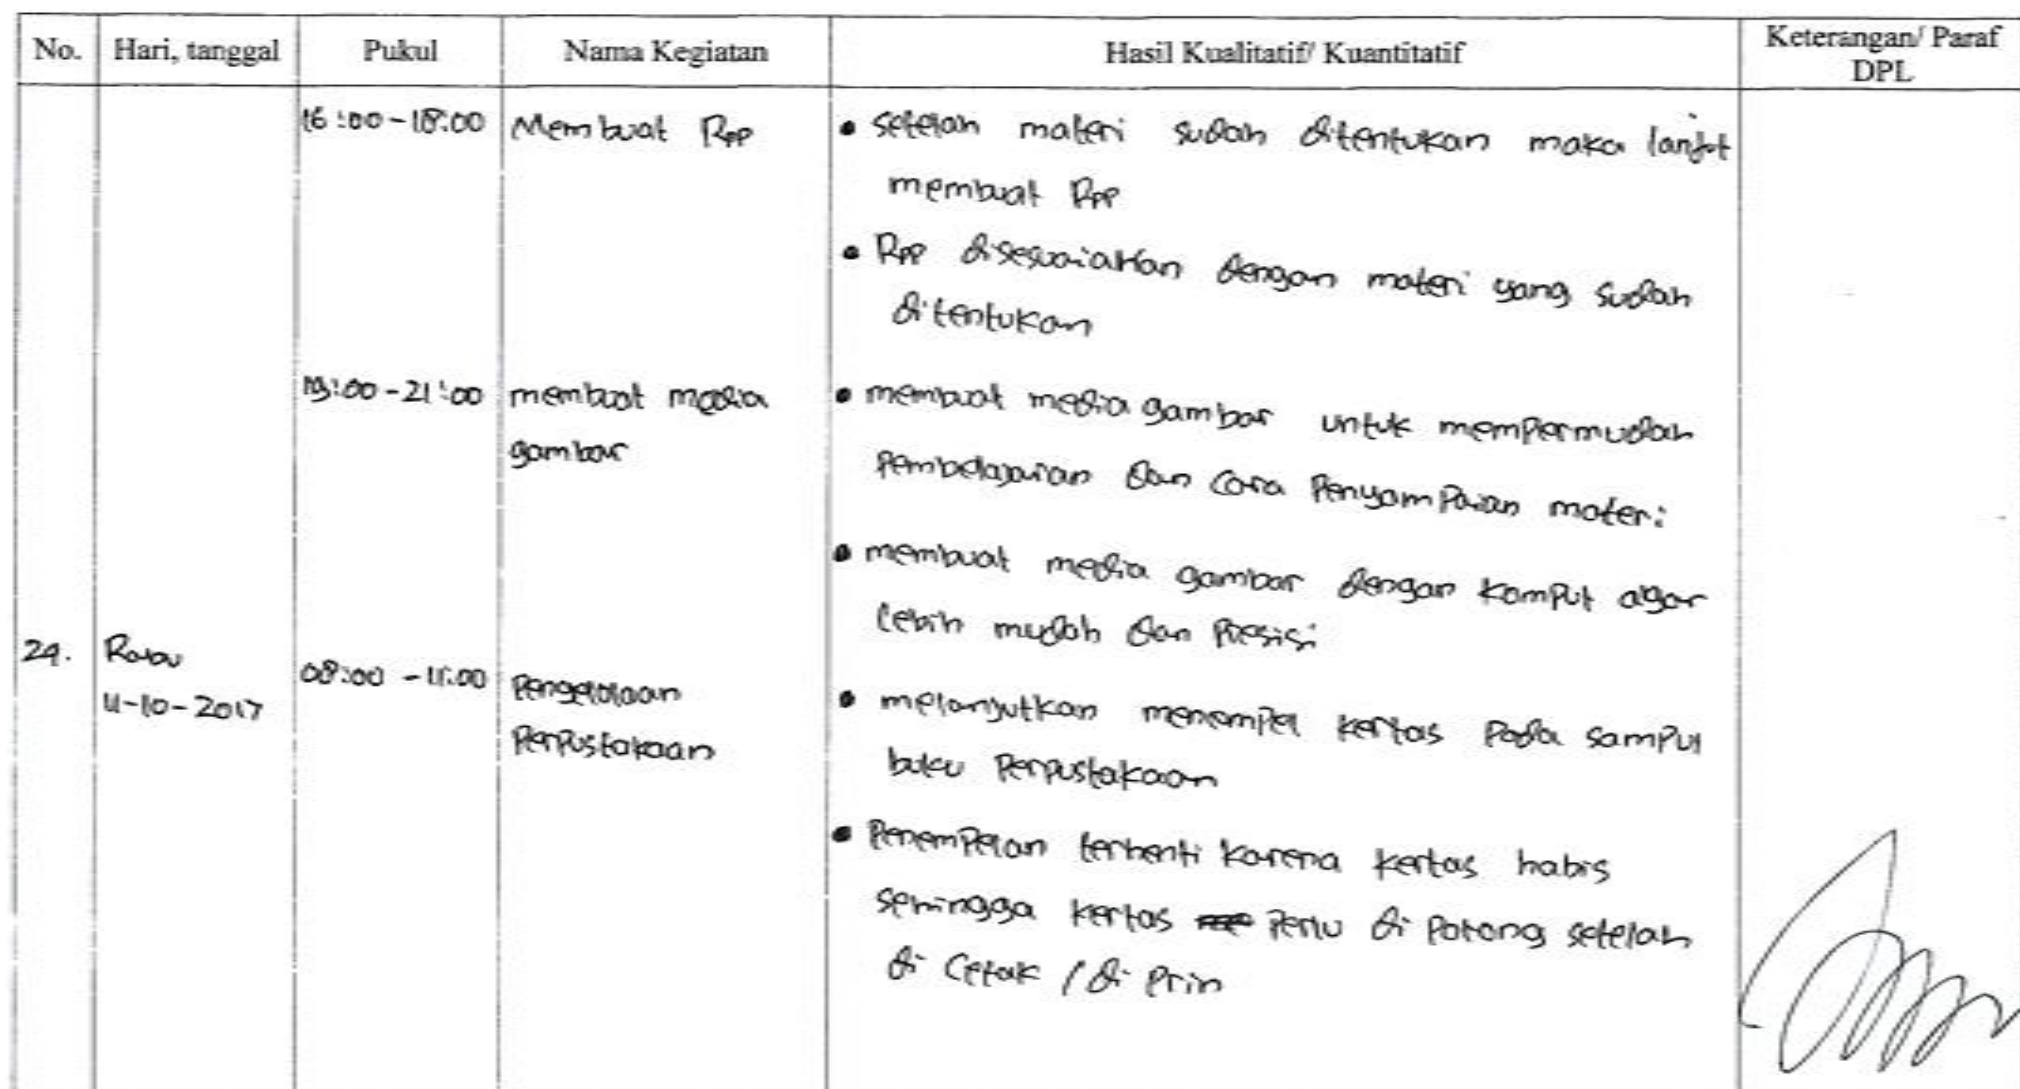 No. Hari, tanggal Pukul Nama Kegiatan Hasil Kualitatif/ Kuantitatif Keterangan/ Paraf
DPL
16:00-18:00 Membuat RPP • setelah materi sudah ditentukan maka lanjut
membuat RPP
• RPP disesuaiakan dengan materi yang sudah
ditentukan
19:00-21:00 membuat media • membuat media gambar untuk mempermudah
gambar
pembelajaran dan cara Penyampaian materi
• membuat media gambar dengan komput agar
lebih mudah dan Presisi
29. Rabu 08:00 - 11:00 Pengelolaan • melanjutkan menempel kertas pada sampul
11-10-2017
Perpustakaan
buku Perpustakaan
• Penempelan terhenti karena kertas habis
sehingga kertas perlu di potong setelah
di cetak / di Prin